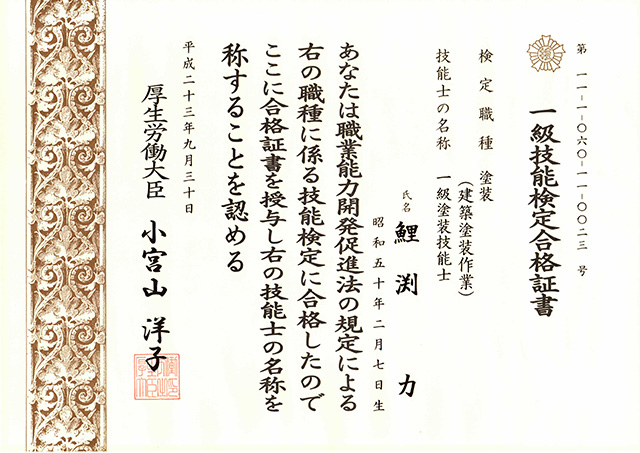 第 一一-一-〇六〇-一一-〇〇二三 号
一級技能検定合格証書
検定職種 塗装
(建築塗装作業)
技能士の名称 一級塗装技能士
氏名 鯉渕 力
昭和五十年二月七日生
あなたは職業能力開発促進法の規定による
右の職種に係る技能検定に合格したので
ここに合格証書を授与し右の技能士の名称を
称することを認める
平成二十三年九月三十日
厚生労働大臣 小宮山 洋子